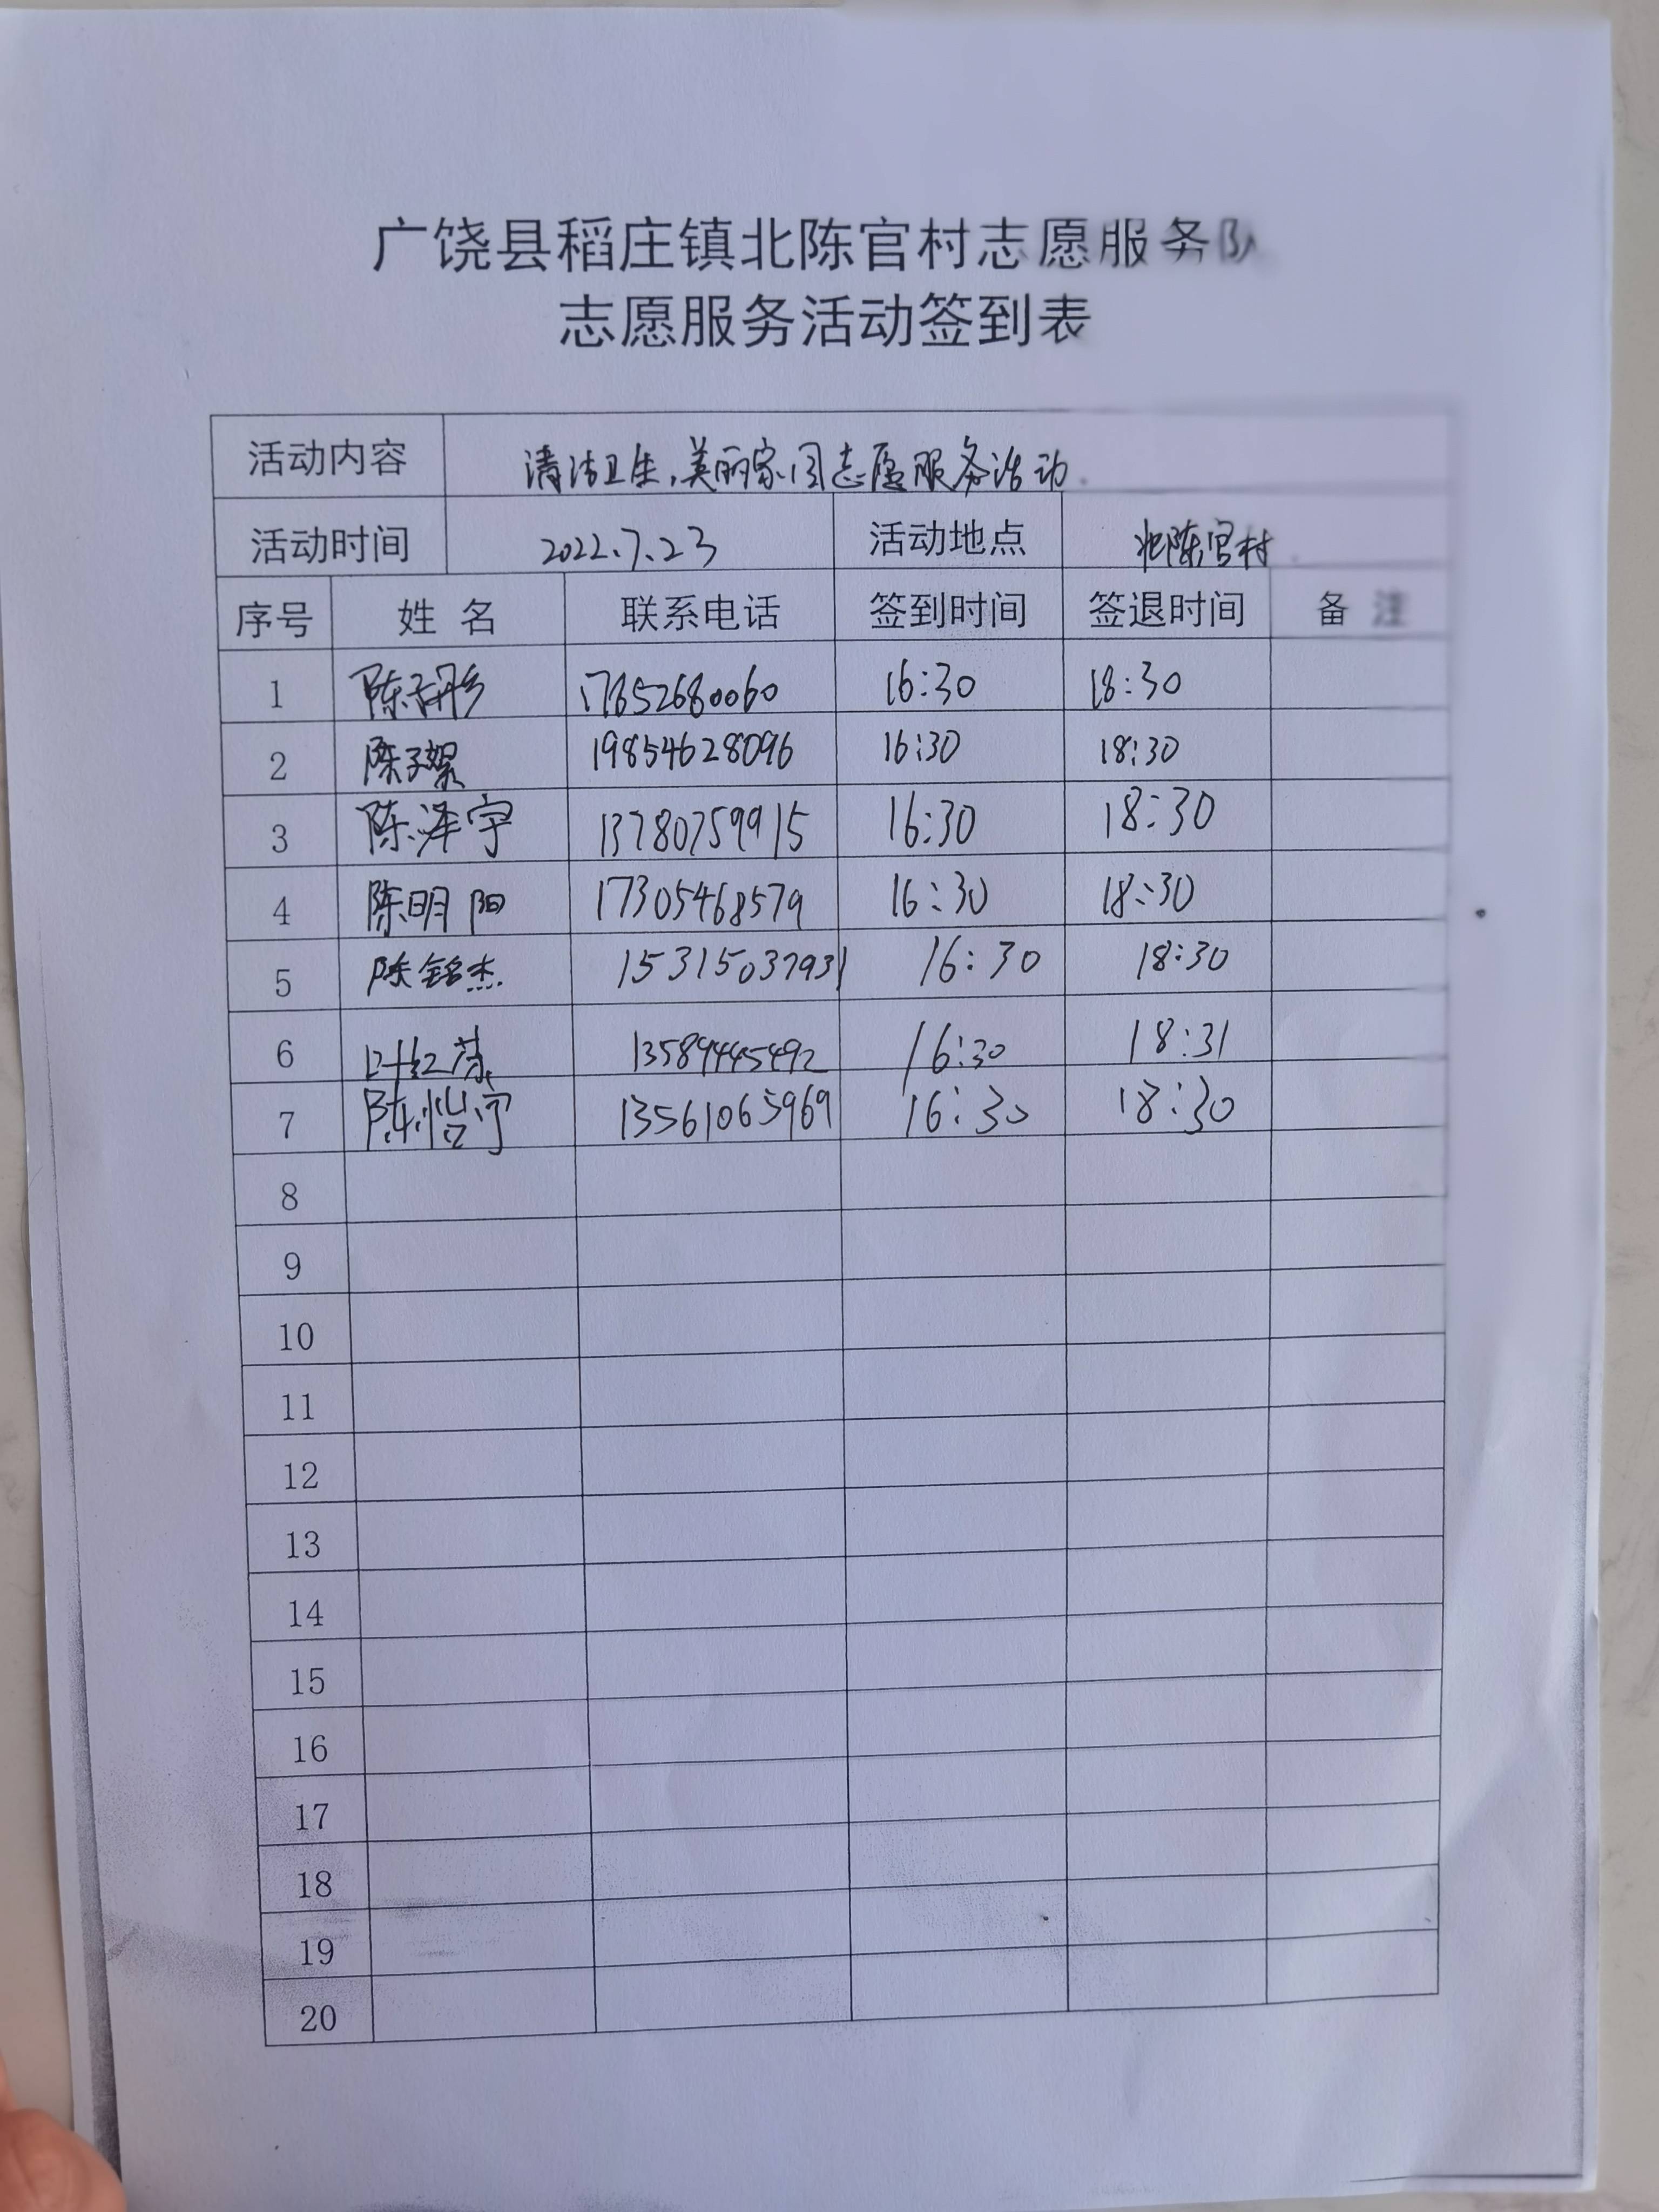 广饶县稻庄镇北陈官村志愿服务队
志愿服务活动签到表
活动内容 清洁卫生,美丽家园志愿服务活动.
活动时间 2022.7.23 活动地点 北陈官村
序号 姓 名 联系电话 签到时间 签退时间 备 注
1 陈子彤 17852680060 16:30 18:30
2 陈子絮 19854628096 16:30 18:30
3 陈泽宇 13780759915 16:30 18:30
4 陈明阳 17305468579 16:30 18:30
5 陈铭杰 15315037931 16:30 18:30
6 13589445492 16:30 18:31
7 陈怡宁 13561065969 16:30 18:30
8
9
10
11
12
13
14
15
16
17
18
19
20